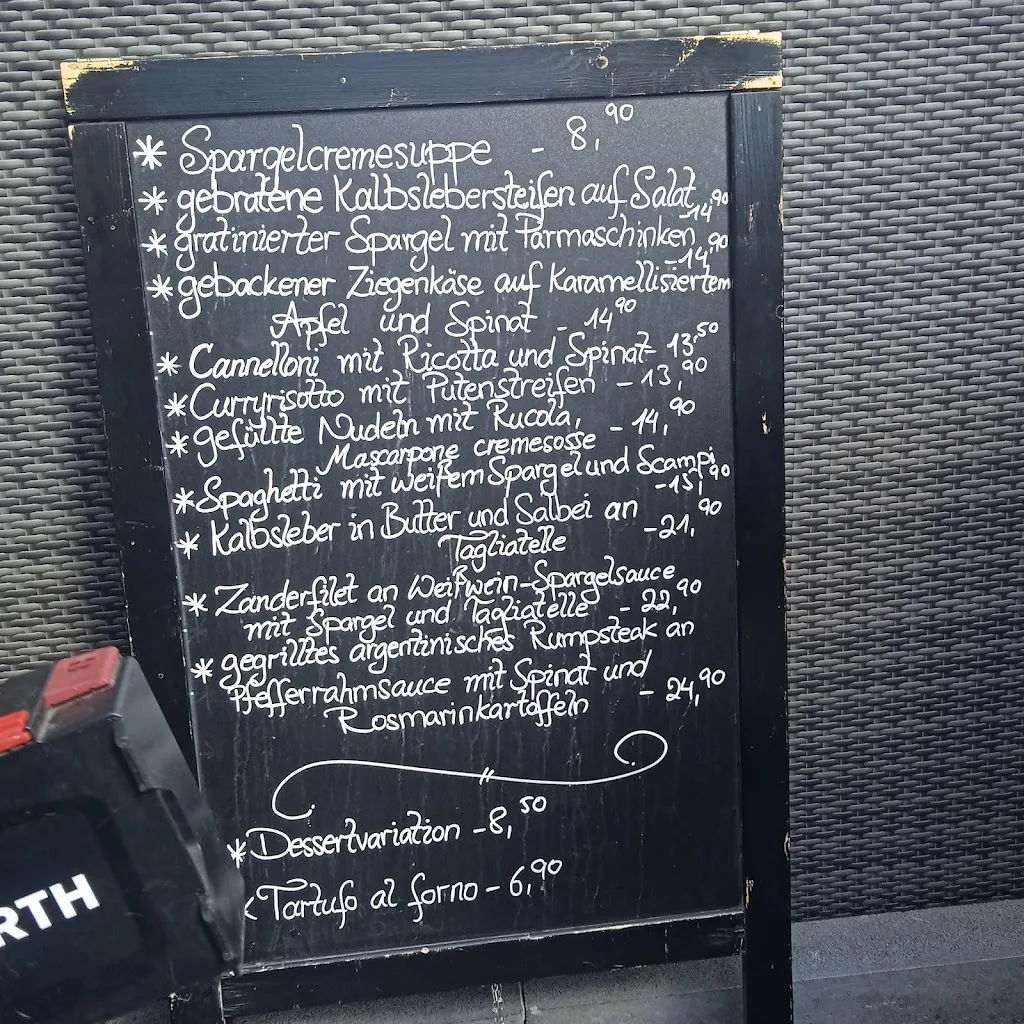 * Spargelcremesuppe - 8,90
* gebratene Kalbslebersteifen auf Salat
-14,90
* gratinierter Spargel mit Parmaschinken
-14,90
* gebackener Ziegenkäse auf Karamellisiertem
Apfel und Spinat - 14,90
* Cannelloni mit Ricotta und Spinat - 13,50
* Curryrisotto mit Putenstreifen - 13,90
* gefüllte Nudeln mit Rucola,
Mascarpone cremesosse - 14,90
* Spaghetti mit weißem Spargel und Scampi
-15,90
* Kalbsleber in Butter und Salbei an
Tagliatelle -21,90
* Zanderfilet an Weißwein-Spargelsauce
mit Spargel und Tagliatelle - 22,90
* gegrilltes argentinisches Rumpsteak an
Pfefferrahmsauce mit Spinat und
Rosmarinkartoffeln - 24,90
* Dessertvariation - 8,50
Tartufo al forno - 6,90
RTH